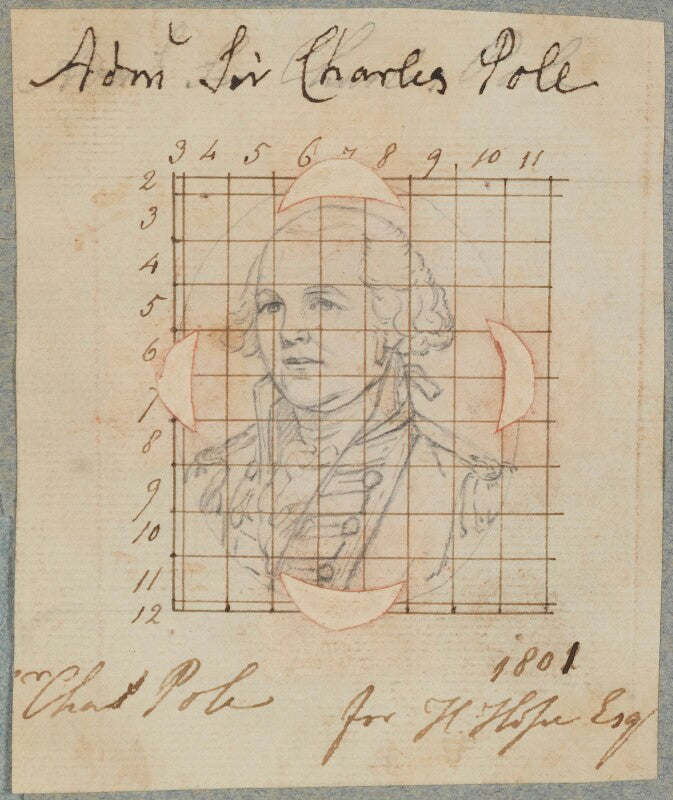 Adml Sir Charles Pole
3 4 5 6 7 8 9 10 11
2
3
4
5
6
7
8
9
10
11
12
1801
Chas Pole
for H. Hope Esq